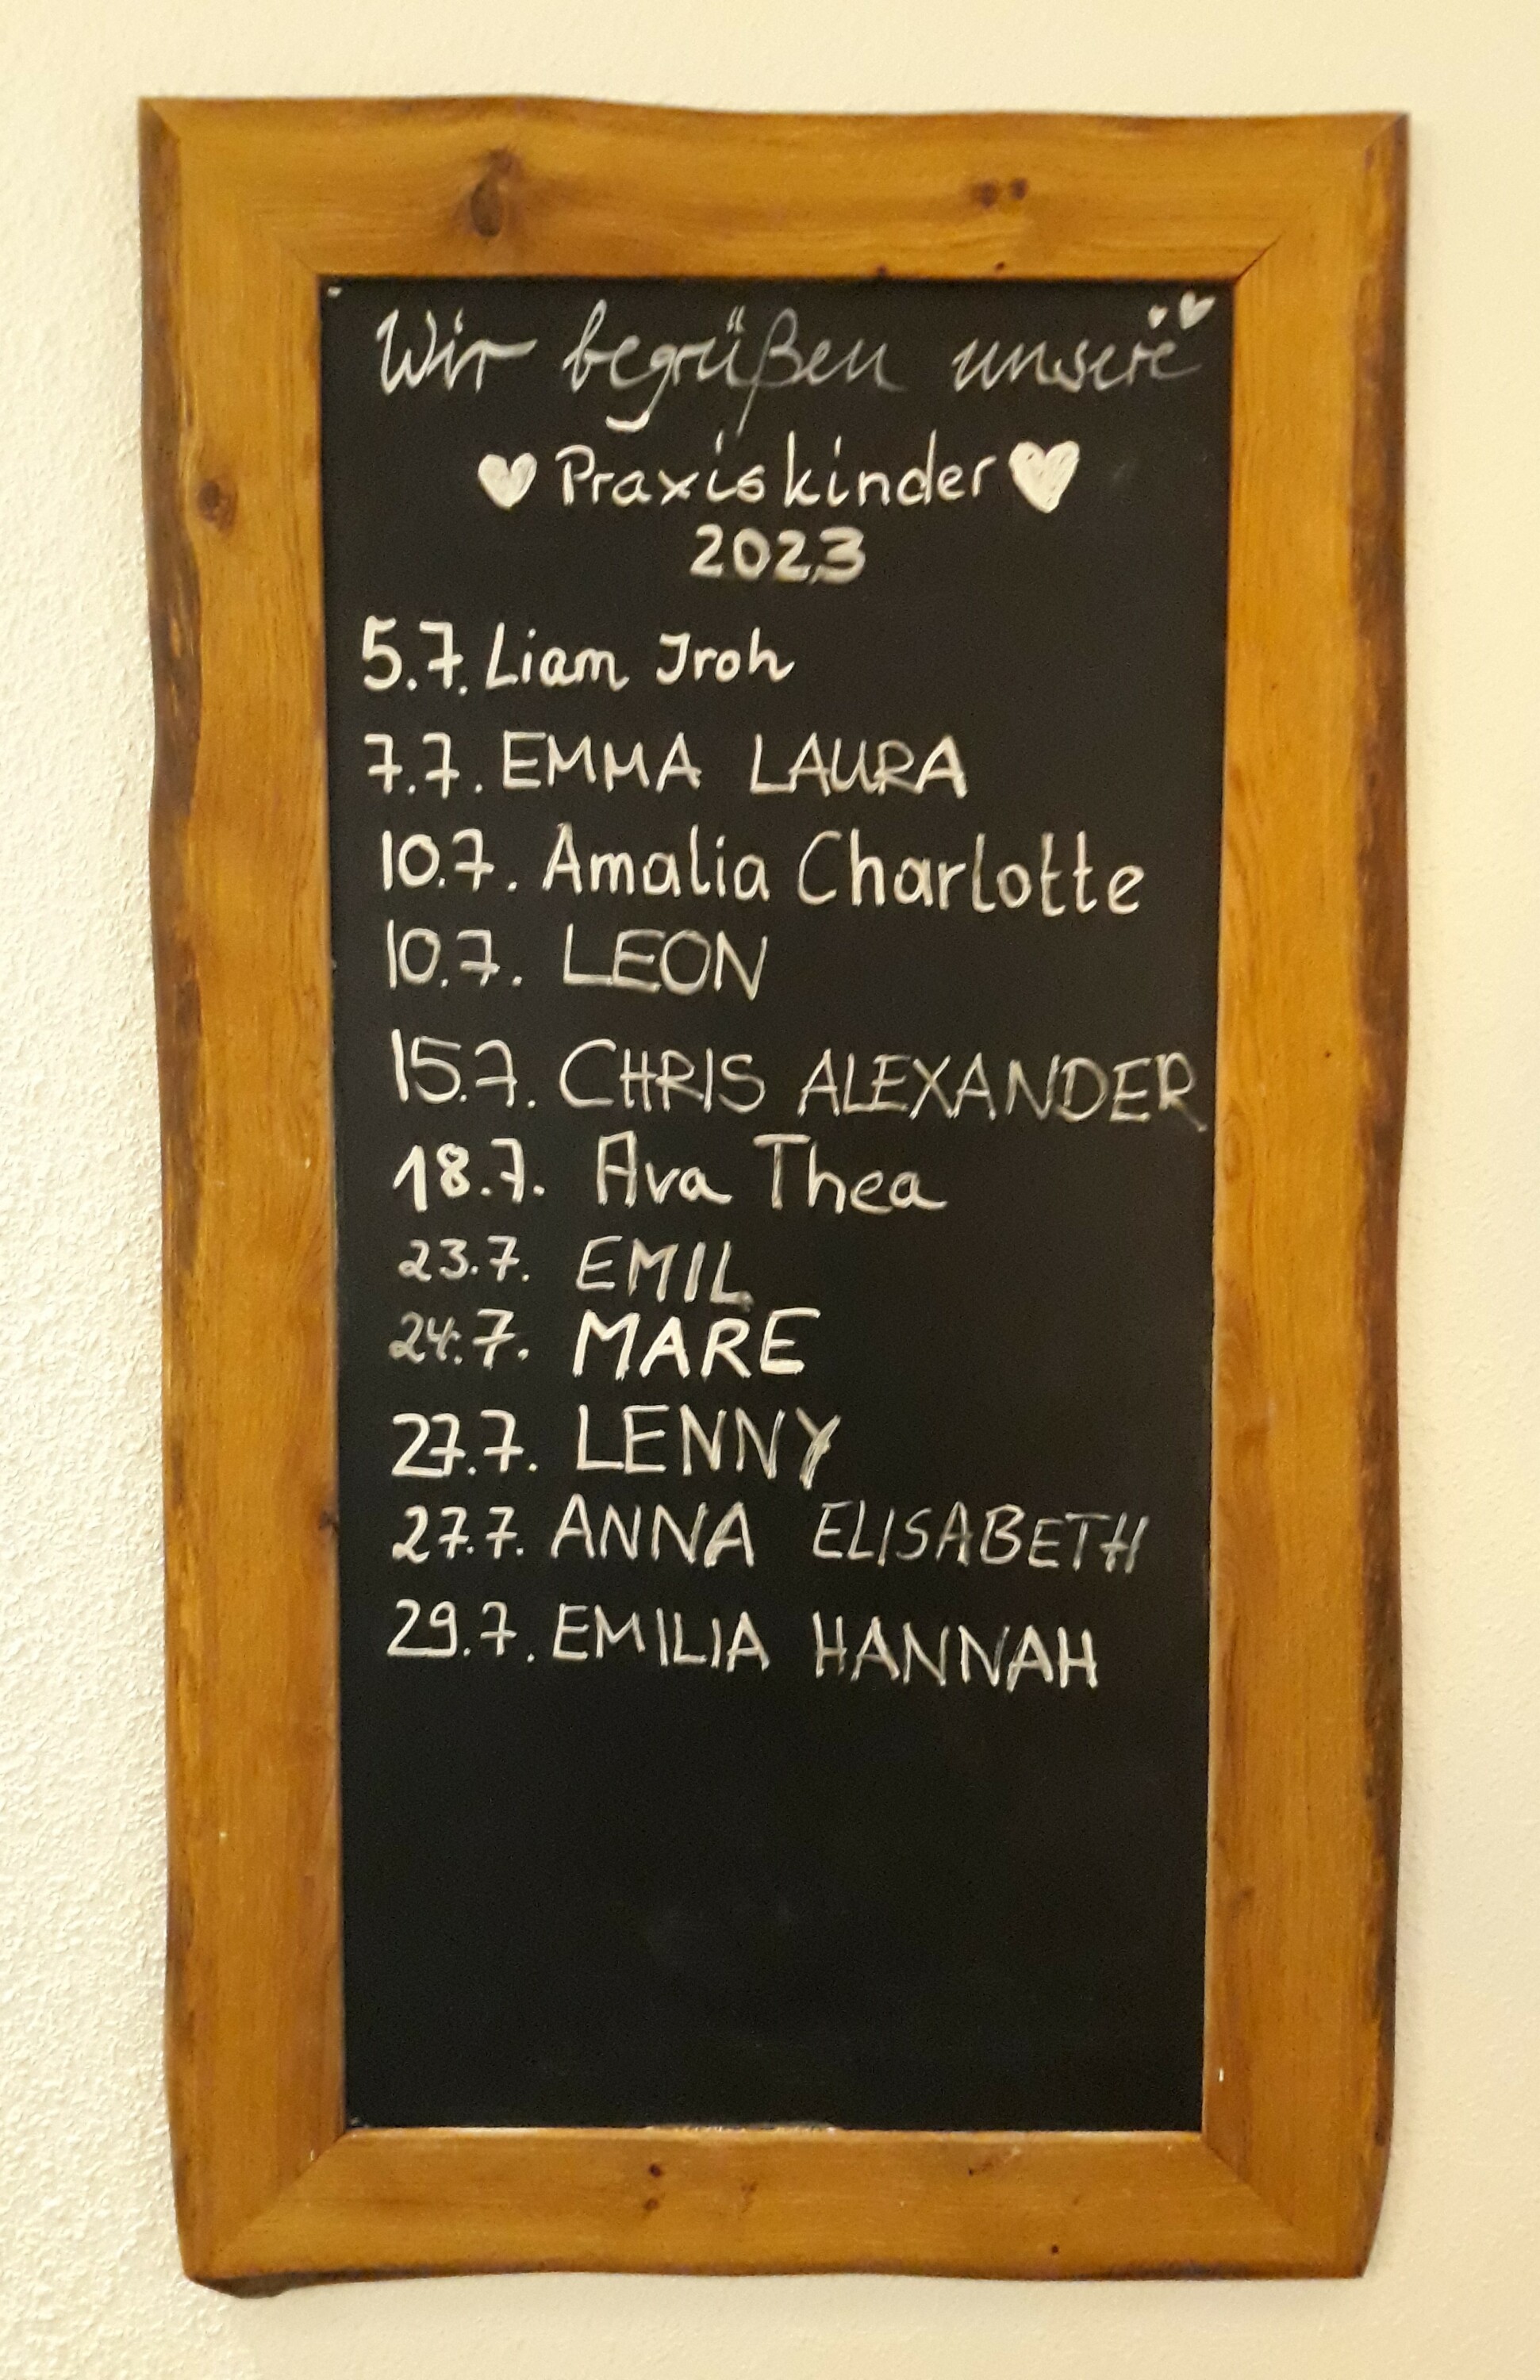 Wir begrüßen unsere
Praxiskinder
2023
5.7. Liam Iroh
7.7. EMMA LAURA
10.7. Amalia Charlotte
10.7. LEON
15.7. CHRIS ALEXANDER
18.7. Ava Thea
23.7. EMIL
24.7. MARE
27.7. LENNY
27.7. ANNA ELISABETH
29.7. EMILIA HANNAH